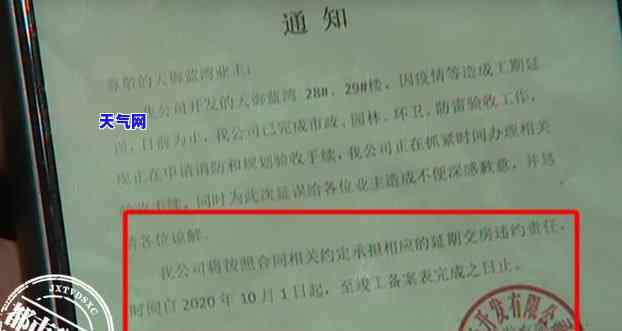 通知
尊敬的天御蓝湾业主:
我公司开发的天御蓝湾 28#、29#楼, 因疫情等造成工期延
目前为止, 我公司已完成市政、园林、环卫、防雷验收工作,
现正在申请消防和规划验收手续, 我公司正在抓紧时间办理相关
验收手续, 同时为此次延误给各位业主造成不便深感歉意, 并恳
请各位谅解.
我公司将按照合同相关约定承担相应的延期交房违约责任,
时间自 2020 年 10 月 1 日起, 至竣工备案表完成之日止.
天气网
JXTVDSXC
都市
开发有限公